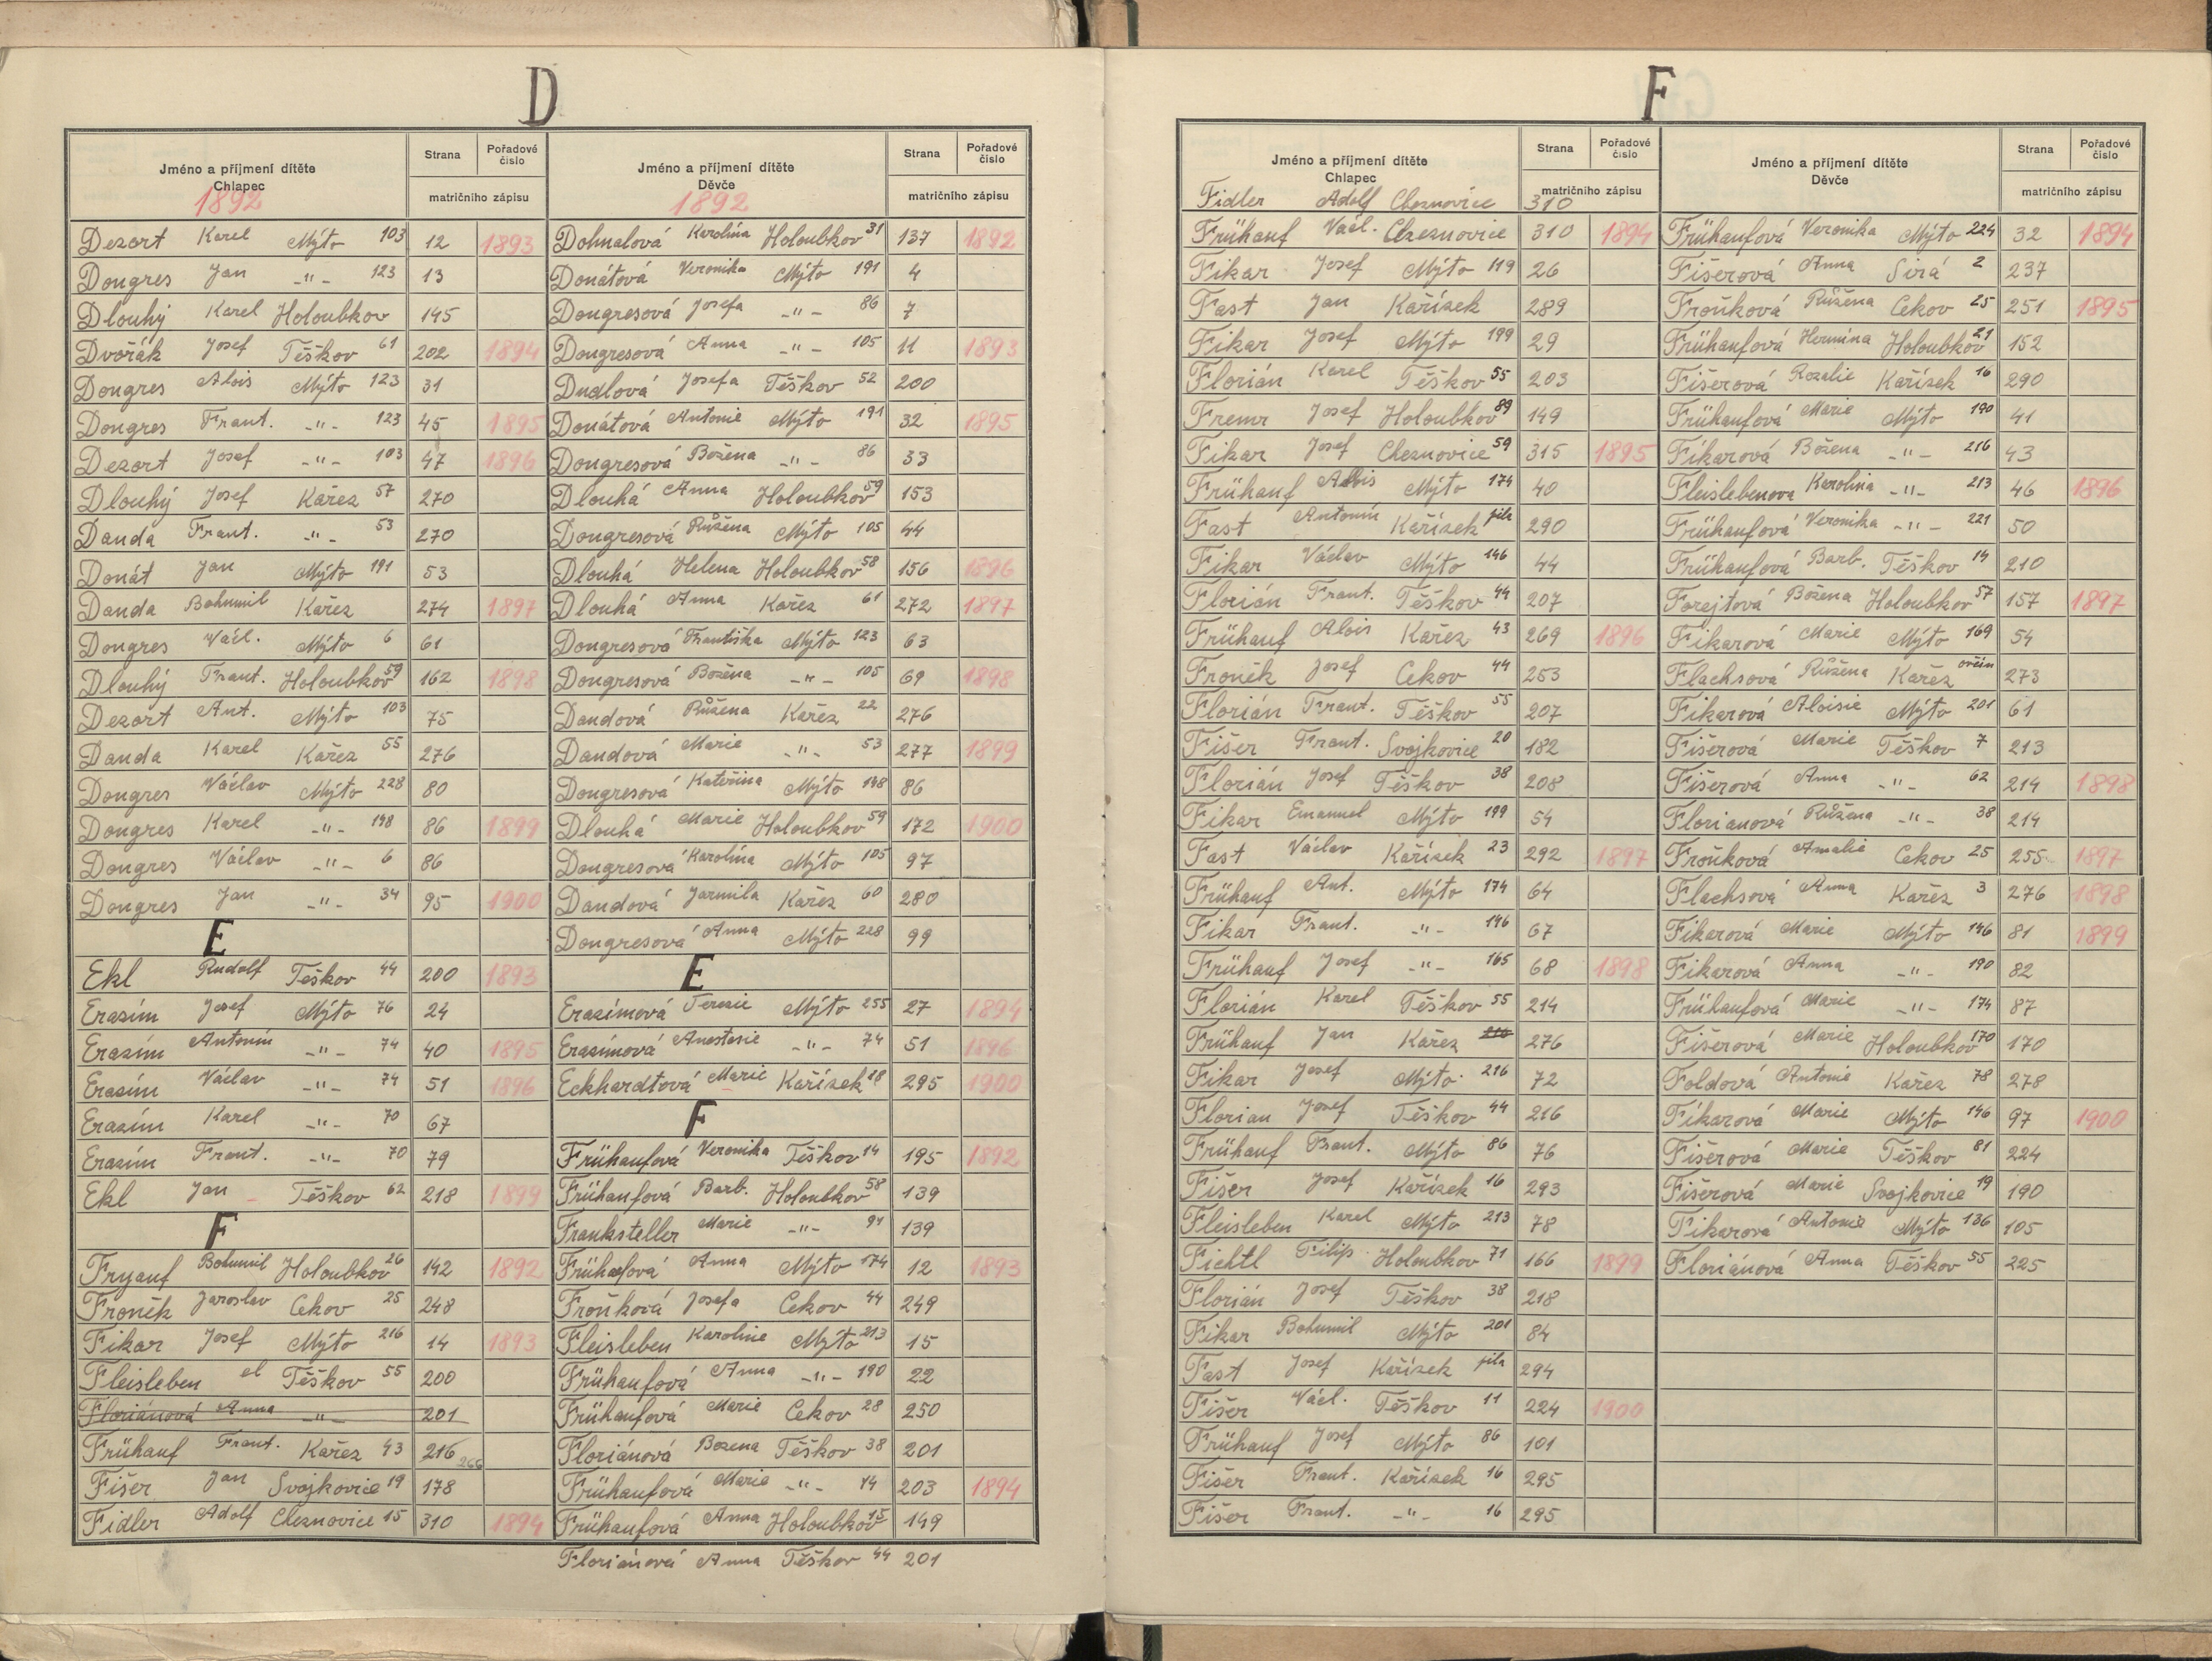 D
Jméno a příjmení dítěte
Chlapec
1892
Strana
Pořadové číslo
matričního zápisu
Dezort Karel Mýto 103 12 1893
Dongres Jan -"- 123 13
Dlouhý Karel Holoubkov 145
Dvořák Josef Těškov 61 202 1894
Dongres Alois Mýto 123 31
Dongres Frant. -"- 123 45 1895
Dezort Josef -"- 103 47 1896
Dlouhý Josef Kařez 57 270
Danda Frant. -"- 53 270
Donát Jan Mýto 191 53
Danda Bohumil Kařez 274 1897
Dongres Václ. Mýto 6 61
Dlouhý Frant. Holoubkov 59 162 1898
Dezort Ant. Mýto 103 75
Danda Karel Kařez 55 276
Dongres Václav Mýto 228 80
Dongres Karel -"- 148 86 1899
Dongres Václav -"- 6 86
Dongres Jan -"- 34 95 1900
E
Ekl Rudolf Teškov 44 200 1893
Erazím Josef Mýto 76 24
Erazím Antonín -"- 74 40 1895
Erazím Václav -"- 74 51 1896
Erazím Karel -"- 70 67
Erazím Frant. -"- 70 79
Ekl Jan Těškov 62 218 1899
F
Fryauf Bohumil Holoubkov 26 142 1892
Froněk Jaroslav Cekov 25 248
Fikar Josef Mýto 216 14 1893
Fleisleben el Těškov 55 200
Floriánová Anna -"- 201
Frühauf Frant. Kařez 43 216 266
Fišer Jan Svojkovice 19 178
Fidler Adolf Cheznovice 15 310 1894
Jméno a příjmení dítěte
Děvče
1892
Strana
Pořadové číslo
matričního zápisu
Dohnalová Karolína Holoubkov 31 137 1892
Donátová Veronika Mýto 191 4
Dongresová Josefa -"- 86 7
Dongresová Anna -"- 105 11 1893
Dudlová Josefa Těškov 52 200
Donátová Antonie Mýto 191 32 1895
Dongresová Božena -"- 86 33
Dlouhá Anna Holoubkov 59 153
Dongresová Růžena Mýto 105 44
Dlouhá Helena Holoubkov 58 156 1896
Dlouhá Anna Kařez 61 272 1897
Dongresová Františka Mýto 123 63
Dongresová Božena -"- 105 69 1898
Dandová Růžena Kařez 22 276
Dandová Marie -"- 53 277 1899
Dongresová Kateřina Mýto 148 86
Dlouhá Marie Holoubkov 59 172 1900
Dongresová Karolína Mýto 105 97
Dandová Jarmila Kařez 60 280
Dongresová Anna Mýto 228 99
E
Erazímová Terezie Mýto 255 27 1894
Erazímová Anastasie -"- 74 51 1896
Eckhardtová Marie Kařízek 18 295 1900
F
Frühaufová Veronika Těškov 14 195 1892
Frühaufová Barb. Holoubkov 58 139
Franksteller Marie -"- 91 139
Frühaufová Anna Mýto 174 12 1893
Froňková Josefa Cekov 44 249
Fleisleben Karoline Mýto 213 15
Frühaufová Anna -"- 190 22
Frühaufová Marie Cekov 28 250
Floriánová Bozena Těškov 38 201
Frühaufová Marie -"- 14 203 1894
Frühaufová Anna Holoubkov 15 149
Floriánová Anna Těškov 44 201
F
Jméno a příjmení dítěte
Chlapec
Strana
Pořadové číslo
matričního zápisu
Fidler Adolf Cheznovice 310
Frühauf Václ. Cheznovice 310 1894
Fikar Josef Mýto 119 26
Fast Jan Kařízek 289
Fikar Josef Mýto 199 29
Florián Karel Těškov 55 203
Fremr Josef Holoubkov 89 149
Fikar Josef Cheznovice 59 315 1895
Frühauf Alois Mýto 174 40
Fast Antonín Kařízek pila 290
Fikar Václav Mýto 146 44
Florián Frant. Těškov 44 207
Frühauf Alois Kařez 43 269 1896
Froněk Josef Cekov 44 253
Florián Frant. Těškov 55 207
Fišer Frant. Svojkovice 20 182
Florián Josef Těškov 38 208
Fikar Emanuel Mýto 199 54
Fast Václav Kařízek 23 292 1897
Frühauf Ant. Mýto 174 64
Fikar Frant. -"- 146 67
Frühauf Josef -"- 165 68 1898
Florián Karel Těškov 55 214
Frühauf Jan Kařez 276
Fikar Josef Mýto 216 72
Florian Josef Těškov 44 216
Frühauf Frant. Mýto 86 76
Fišer Josef Kařízek 16 293
Fleisleben Karel Mýto 213 78
Fichtl Filip Holoubkov 71 166 1899
Florián Josef Těškov 38 218
Fikar Bohumil Mýto 201 84
Fast Josef Kařízek pila 294
Fišer Václ. Těškov 11 224 1900
Frühauf Josef Mýto 86 101
Fišer Frant. Kařízek 16 295
Fišer Frant. -"- 16 295
Jméno a příjmení dítěte
Děvče
Strana
Pořadové číslo
matričního zápisu
Frühaufová Veronika Mýto 224 32 1894
Fišerová Anna Sirá 2 237
Froňková Růžena Cekov 25 251 1895
Frühaufová Hermína Holoubkov 21 152
Fišerová Rozalie Kařízek 16 290
Frühaufová Marie Mýto 190 41
Fikarová Božena -"- 216 43
Fleislebenova Karolina -"- 213 46 1896
Frühaufová Veronika -"- 221 50
Frühaufová Barb. Těškov 14 210
Forejtová Božena Holoubkov 57 157 1897
Fikarová Marie Mýto 169 54
Flachsová Růžena Kařez ovčín 273
Fikarová Aloisie Mýto 201 61
Fišerová Marie Těškov 7 213
Fišerová Anna -"- 62 214 1898
Florianová Růžena -"- 38 214
Froňková Amalie Cekov 25 255 1897
Flachsová Anna Kařez 3 276 1898
Fikarová Marie Mýto 146 81 1899
Fikarová Anna -"- 190 82
Frühaufová Marie -"- 174 87
Fišerová Marie Holoubkov 170 170
Foldová Antonie Kařez 78 278
Fikarová Marie Mýto 146 97 1900
Fišerová Marie Těškov 81 224
Fišerová Marie Svojkovice 19 190
Fikarová Antonie Mýto 136 105
Floriánová Anna Těškov 55 225